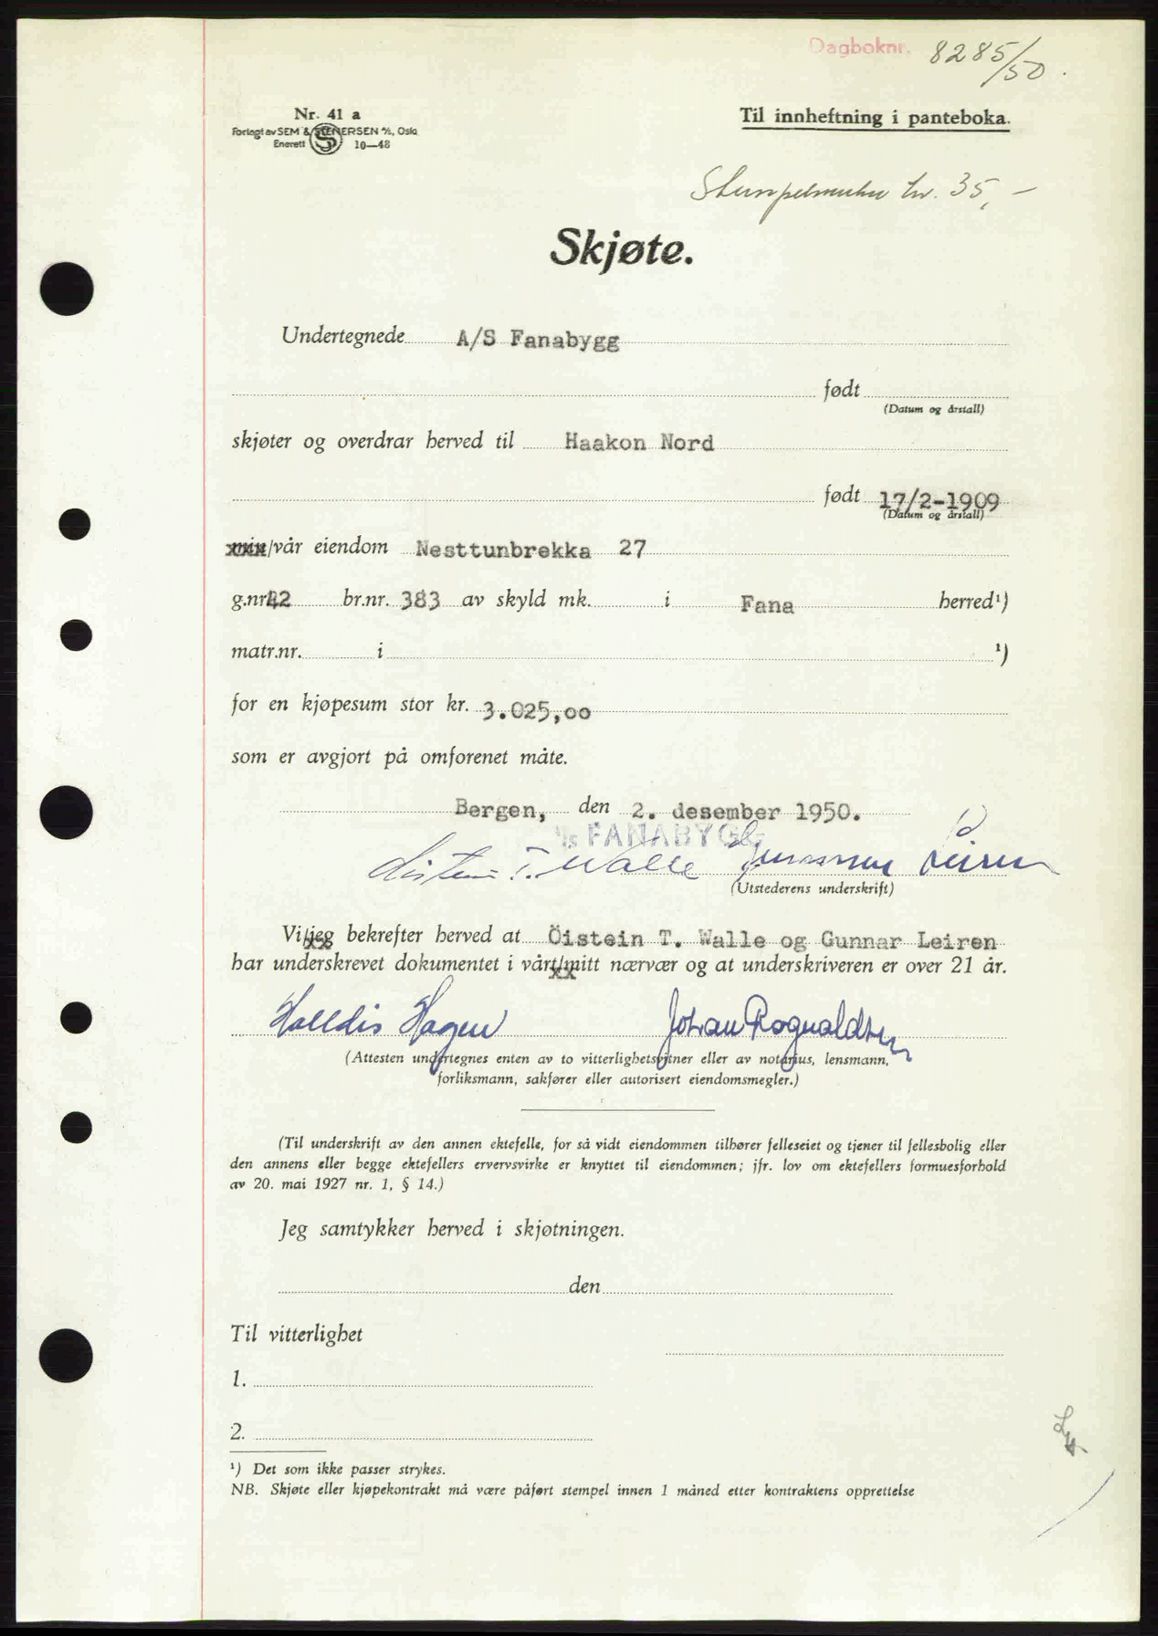 Dagboknr. 8285/50.
Nr. 41 a
Forlagt av SEM & STENERSEN A/S, Oslo
Enerett 10—48
Til innheftning i panteboka.
kr. 35,-
Skjøte.
Undertegnede A/S Fanabygg
født
(Datum og årstall)
skjøter og overdrar herved til Haakon Nord
født 17/2-1909
(Datum og årstall)
min/vår eiendom Nesttunbrekka 27
g.nr. 42 br.nr. 383 av skyld mk. i Fana herred¹)
matr.nr. i ¹)
for en kjøpesum stor kr. 3.025,00
som er avgjort på omforenet måte.
Bergen, den 2. desember 1950.
A/S FANABYGG
Öistein T. Walle Gunnar Leiren
(Utstederens underskrift)
Vi/jeg bekrefter herved at Öistein T. Walle og Gunnar Leiren
har underskrevet dokumentet i vårt/mitt nærvær og at underskriveren er over 21 år.
Halldis Hagen Johan Rognaldsen
(Attesten undertegnes enten av to vitterlighetsvitner eller av notarius, lensmann,
forliksmann, sakfører eller autorisert eiendomsmegler.)
(Til underskrift av den annen ektefelle, for så vidt eiendommen tilhører felleseiet og tjener til fellesbolig eller
den annens eller begge ektefellers ervervsvirke er knyttet til eiendommen; jfr. lov om ektefellers formuesforhold
av 20. mai 1927 nr. 1, § 14.)
Jeg samtykker herved i skjøtningen.
den
Til vitterlighet
1.
2.
¹) Det som ikke passer strykes.
NB. Skjøte eller kjøpekontrakt må være påført stempel innen 1 måned etter kontraktens opprettelse